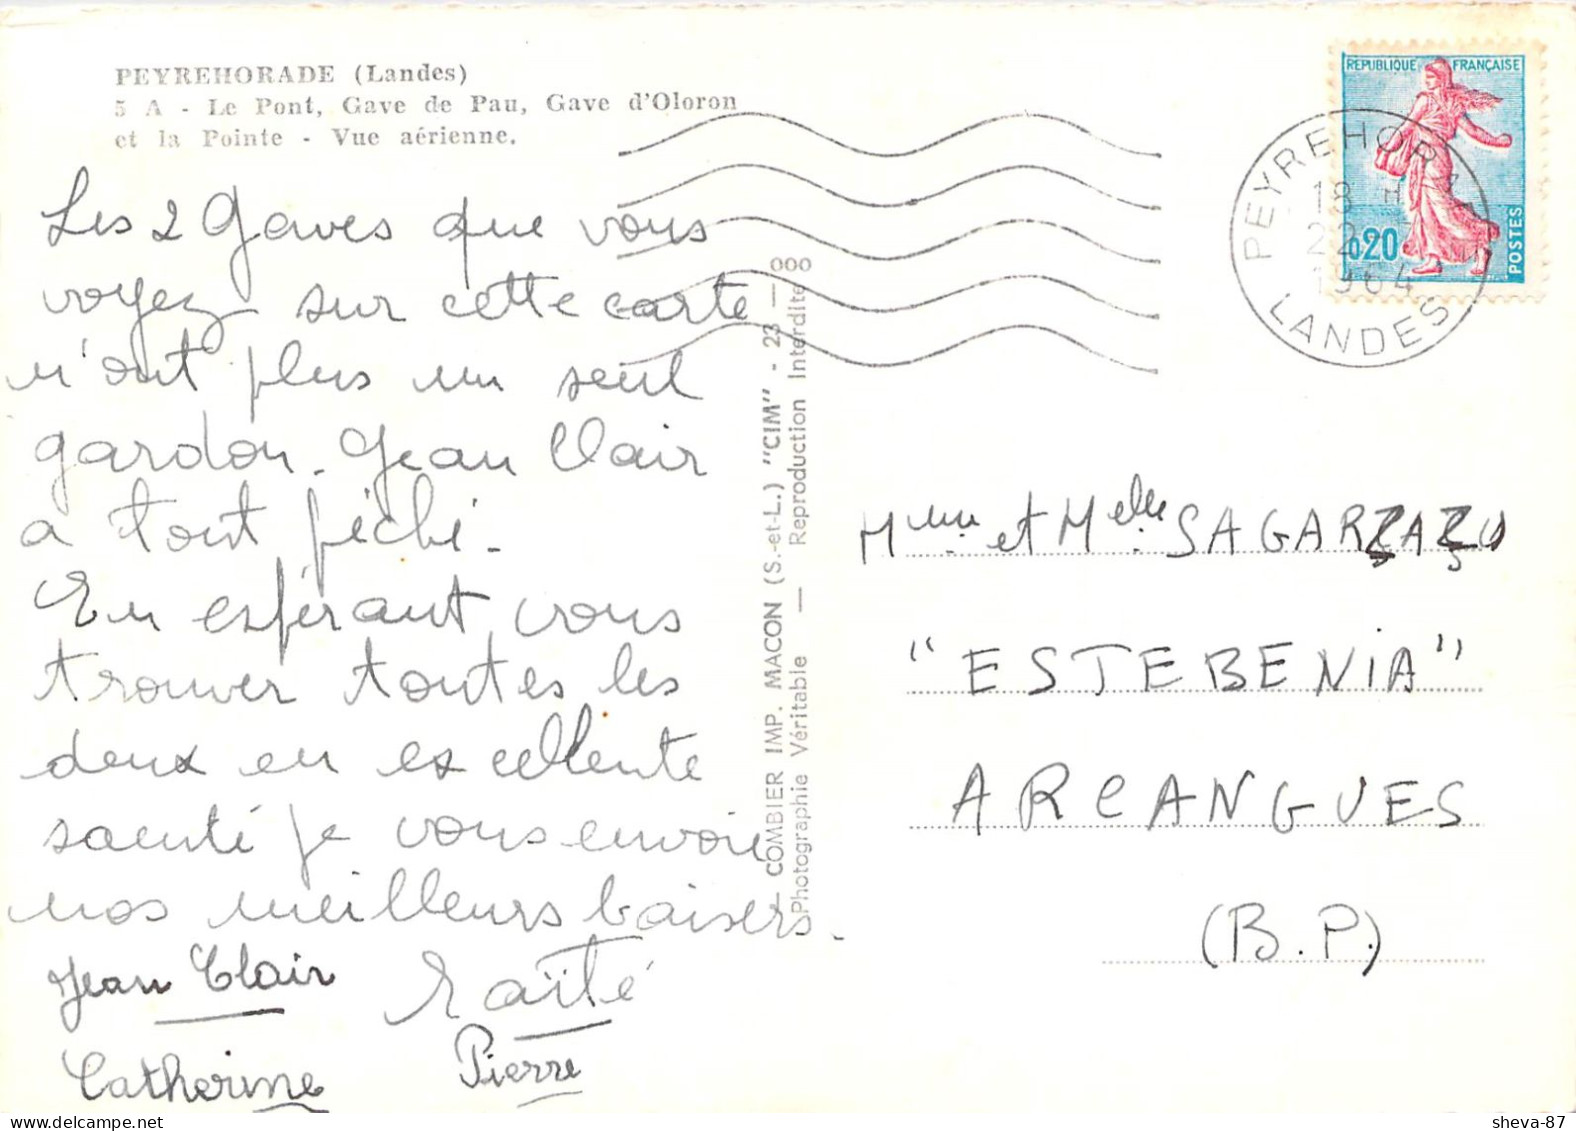 PEYREHORADE (Landes)
5 A - Le Pont, Gave de Pau, Gave d'Oloron
et la Pointe - Vue aérienne.
Les 2 Gaves que vous
voyez sur cette carte
n'ont plus un seul
gardon. Jean Clair
a tout pêché.
En espérant vous
trouver toutes les
deux en excellente
santé je vous envoie
nos meilleurs baisers.
Jean Clair
Maïté
Catherine
Pierre
COMBIER IMP. MACON (S.-et-L.) "CIM" - 23 - 000
Photographie Véritable — Reproduction Interdite
REPUBLIQUE FRANÇAISE
0,20
POSTES
PEYREHOR
18 H
22
1964
LANDES
Mme et Melle SAGARZAZU
"ESTEBENIA"
ARCANGUES
(B.P.)
sheva-87